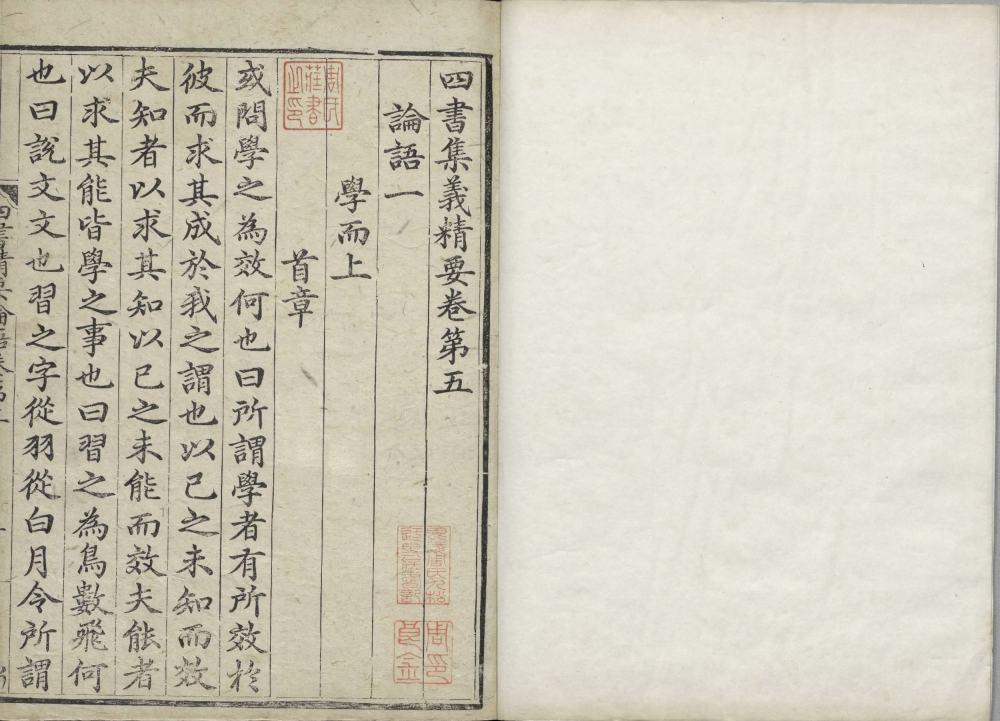 四書集義精要卷第五
論語一
學而上
首章
或問學之為效何也曰所謂學者有所效於
彼而求其成於我之謂也以己之未知而效
夫知者以求其知以己之未能而效夫能者
以求其能皆學之事也曰習之為鳥數飛何
也曰說文文也習之字從羽從白月令所謂